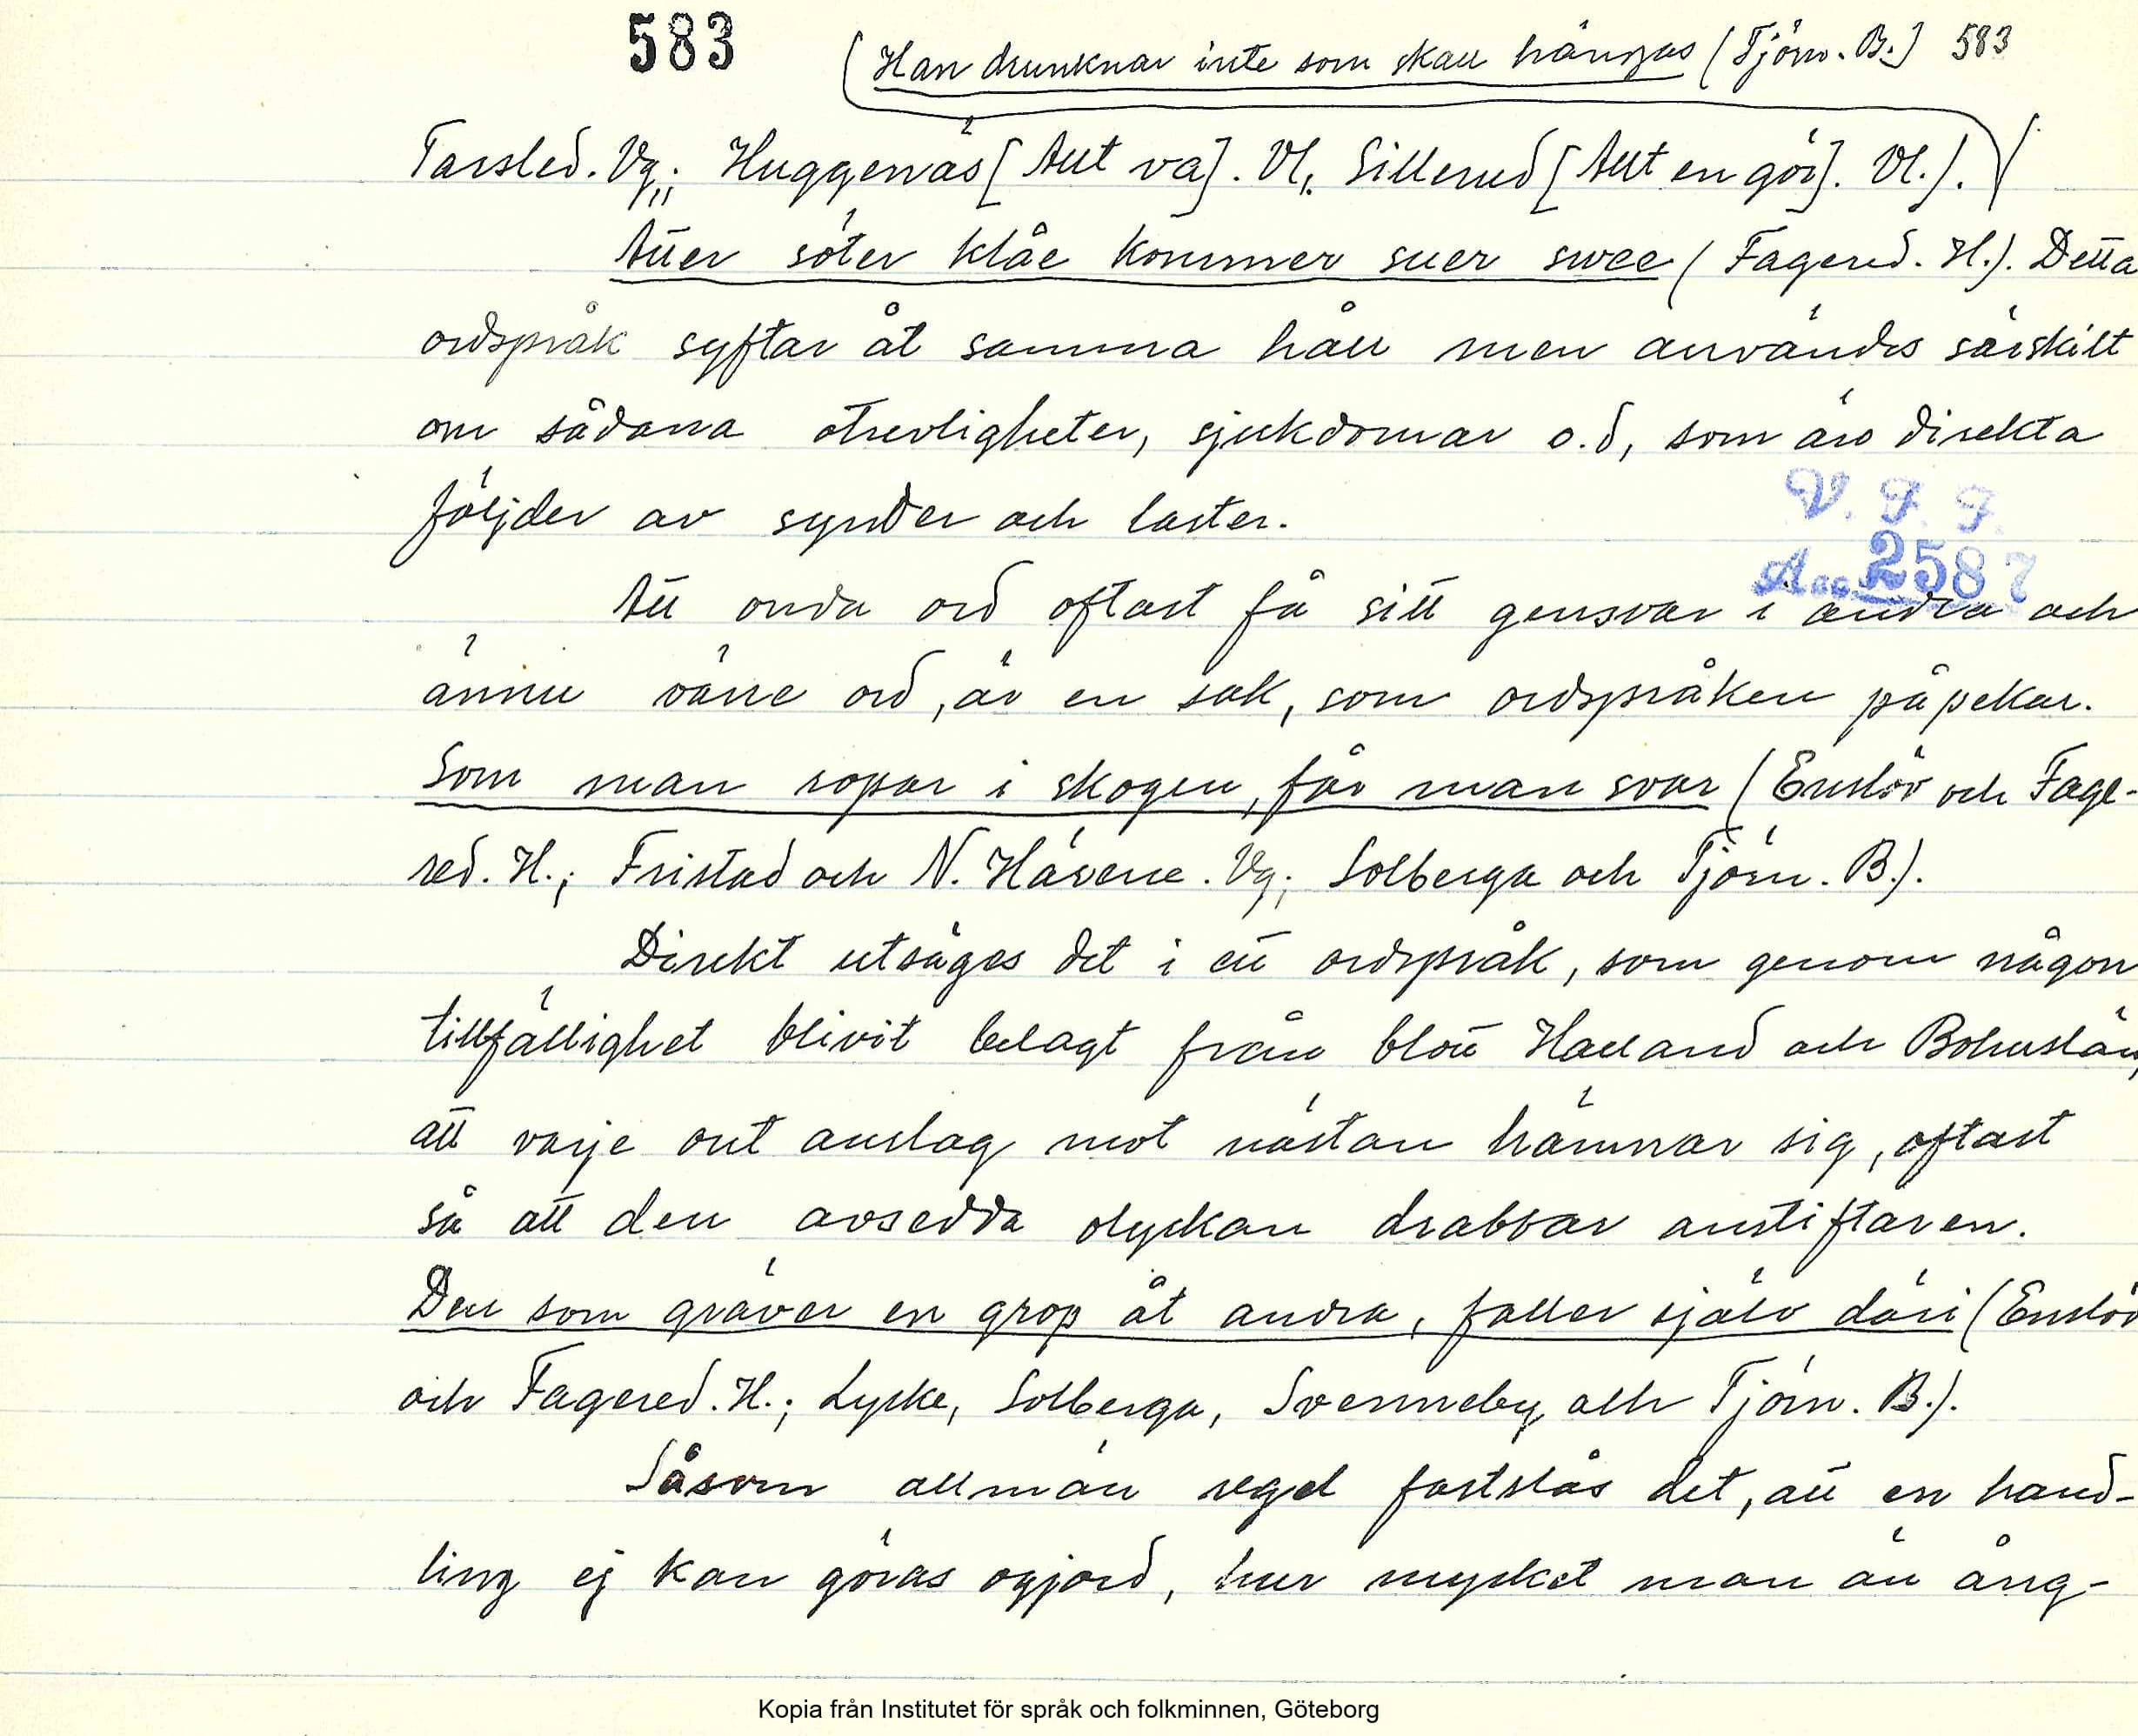 583 (Han drunknar inte som skall hängas (Tjörn. B.) 583
Tarsled. Vg.; Huggenäs [Allt va]. Vl. Sillerud [Allt en gör]. Vl.).
Atter söter klåe kommer suer svee (Fagered. H.). Detta
ordspråk syftar åt samma håll men användes särskilt
om sådana otrevligheter, sjukdomar o.d, som äro direkta
följder av synder och laster.
V. F. F.
Acc. 2587
Att onda ord oftast få sitt gensvar i andra och
ännu värre ord, är en sak, som ordspråken påpekar.
Som man ropar i skogen, får man svar (Enslöv och Fage-
red. H.; Fristad och N. Härene. Vg; Solberga och Tjörn. B.).
Direkt utsäges det i ett ordspråk, som genom någon
tillfällighet blivit belagt från blott Halland och Bohuslän,
att varje ont anslag mot nästan hämnar sig, oftast
så att den avsedda olyckan drabbar anstiftaren.
Den som gräver en grop åt andra, faller själv däri (Enslöv
och Fagered. H.; Lyske, Solberga, Svenneby och Tjörn. B.).
Såsom allmän regel fastslås det, att en hand-
ling ej kan göras ogjord, hur mycket man än ång-
Kopia från Institutet för språk och folkminnen, Göteborg